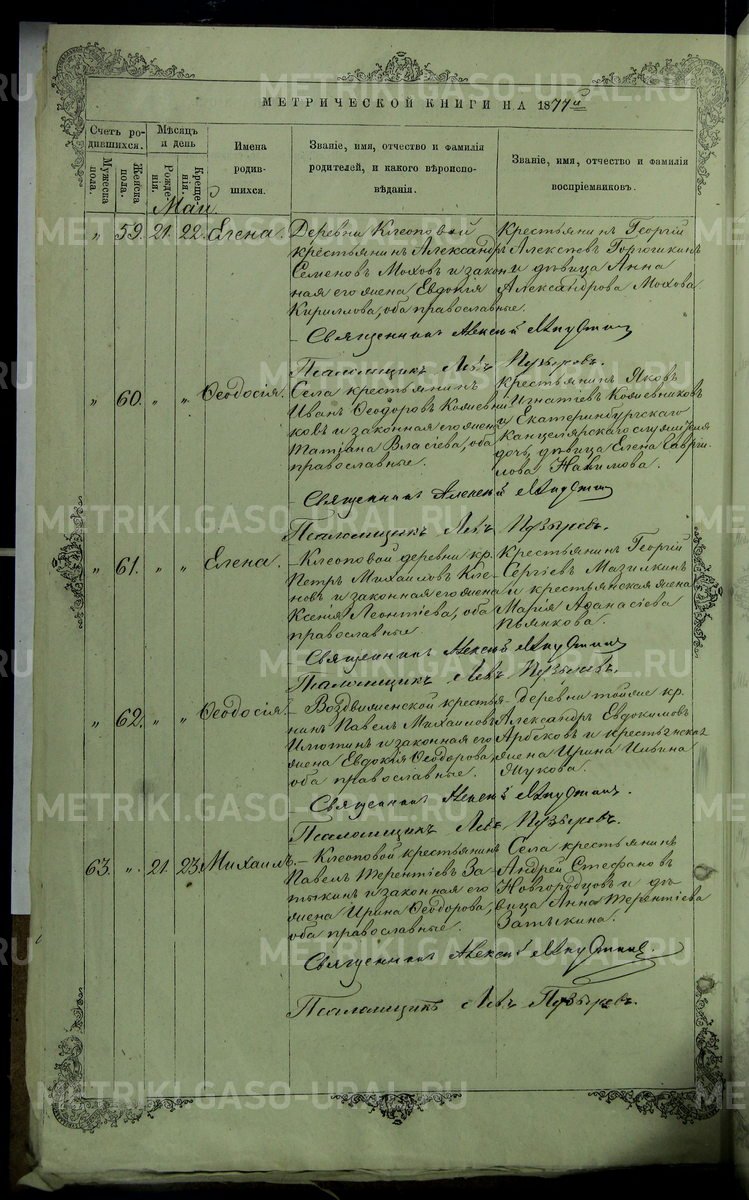 МЕТРИЧЕСКОЙ КНИГИ НА 1877й
Счетъ родившихся.
Мужеска пола.
Женска пола.
Мѣсяцъ и день
Рожденія.
Крещенія.
Имена родившихся.
Званіе, имя, отчество и фамилія родителей, и какого вѣроисповѣданія.
Званіе, имя, отчество и фамилія воспріемниковъ.
Май.
" 59. 21. 22. Елена.
Деревни Клеоповой
крестьянинъ Александръ
Семеновъ Моховъ и закон
ная его жена Евдокія
Кириллова, оба православные.
Крестьянинъ Георгій
Алексѣевъ
и дѣвица Анна
Александрова Мохова.
Священникъ Алексѣй
Псаломщикъ Левъ Пузыревъ.
" 60. " " Ѳеодосія.
Села крестьянинъ
Иванъ Ѳеодоровъ Кожевни
ковъ и законная его жена
Татіана Власіева, оба
православные.
Крестьянинъ Яковъ
Игнатіевъ Кожевниковъ
и Екатеринбургскаго
Канцелярскаго служителя
дочь, дѣвица Елена Гаврiи-
лова
Священникъ Алексѣй
Псаломщикъ Левъ Пузыревъ.
" 61. " " Елена.
– Клеоповой деревни кр.
Петръ Михаиловъ Кле-
новъ и законная его жена
Ксенія Леонтіева, оба
православные.
Крестьянинъ Георгій
Сергіевъ Мазилкинъ
и крестьянская жена
Марія Аѳанасіева
Пьянкова.
Священникъ Алексѣй
Псаломщикъ Левъ Пузыревъ.
" 62. " " Ѳеодосія.
– Воздвиженской крестья-
нинъ Павелъ Михаиловъ
и законная его
жена Евдокія Ѳеодорова,
оба православные.
Деревни тойже кр.
Александръ Евдокимовъ
Арбековъ и крестьянская
жена Ирина Ильина
Жукова.
Священникъ Алексѣй
Псаломщикъ Левъ Пузыревъ.
63. " 21. 23. Михаилъ.
– Клеоповой крестьянинъ
Павелъ Терентіевъ За-
тыкинъ и законная его
жена Ирина Ѳеодорова,
оба православные.
Села крестьянинъ
Андрей Стефановъ
Новгородцовъ и дѣ-
вица Анна Терентіева
Затыкина.
Священникъ Алексѣй
Псаломщикъ Левъ Пузыревъ.
METRIKI.GASO-URAL.RU